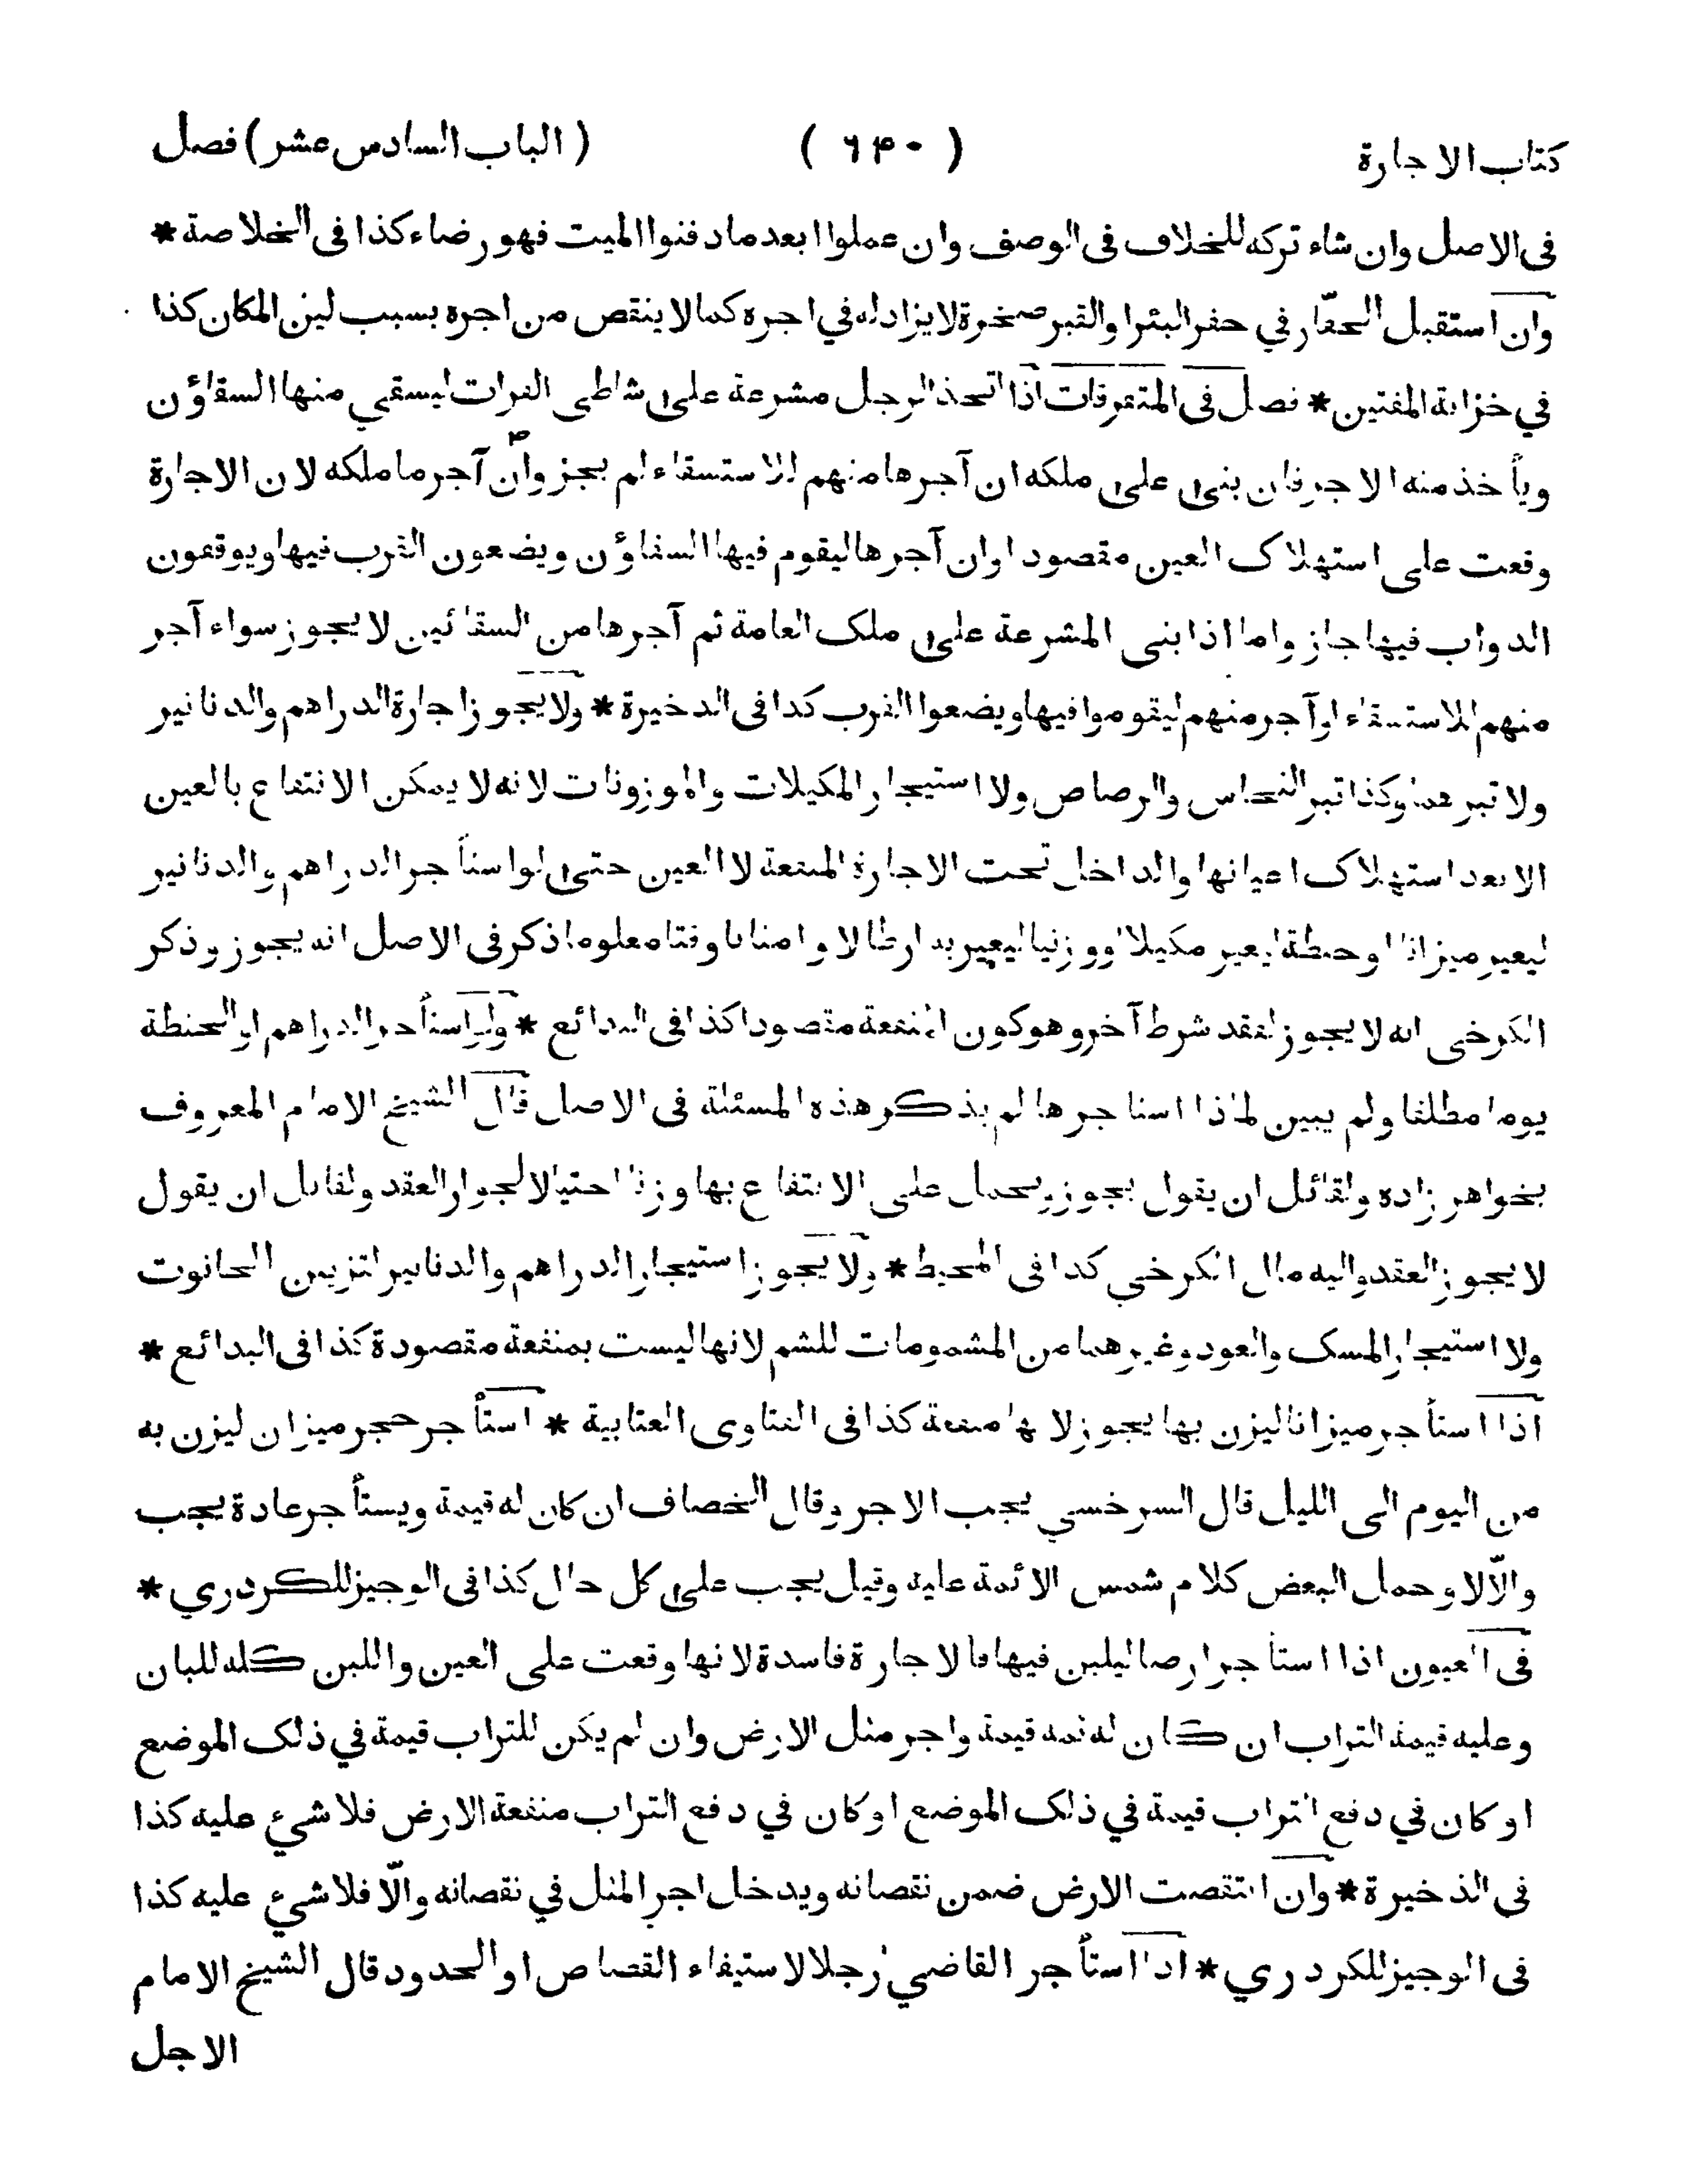 كتاب الاجارة ( ٦۴٠ ) ( الباب السادس عشر ) فصل
فى الاصل وان شاء تركه للخلاف فى الوصف وان عملوا ابعد ماد فنوا الميت فهو رضاء كذا فى الخلاصة *
وان استقبل الحفّار في حفر البئرا والقبر صخرة لا يزاد له في اجره كما لا ينقص من اجره بسبب لين المكان كذا
في خزانة المفتين * فصل فى المتفرقات اذا اتخذ الرجل مشرعة على شاطى الفرات ليسقي منها السقاؤن
ويأخذ منه الاجر فان بنى على ملكه ان آجرها منهم للاستسقاء لم يجز وان آجر ما ملكه لان الاجارة
وقعت على استهلاك العين مقصودا وان آجرها ليقوم فيها السقاؤن ويضعون القرب فيها ويوقفون
الدواب فيها جاز واما اذا بنى المشرعة على ملك العامة ثم آجرها من السقائين لا يجوز سواء آجر
منهم للاستسقاء او آجر منهم ليقوموا فيها ويضعوا القرب كذا فى الذخيرة * ولا يجوز اجارة الدراهم والدنانير
ولا تبرهما وكذا تبر النحاس والرصاص ولا استيجار المكيلات والموزونات لانه لا يمكن الانتفاع بالعين
الا بعد استهلاك اعيانها والداخل تحت الاجارة المنفعة لا العين حتى لو استأجر الدراهم والدنانير
ليعير ميزانا او حنطة ليعير مكيلا او وزنيا ليعير به ارطالا وامنانا وقتا معلوما ذكر فى الاصل انه يجوز وذكر
الكرخى انه لا يجوز لفقد شرط آخر وهو كون المنفعة مقصودا كذا فى البدائع * ولو استأجر الدراهم او الحنطة
يوما مطلقا ولم يبين لماذا استاجرها لم يذكر هذه المسئلة فى الاصل قال الشيخ الامام المعروف
بخواهر زاده ولقائل ان يقول يجوز ويحمل على الانتفاع بها وزنا احتيالا لجواز العقد ولقائل ان يقول
لا يجوز العقد واليه مال الكرخي كذا فى المحيط * ولا يجوز استيجار الدراهم والدنانير لتزيين الحانوت
ولا استيجار المسك والعود وغيرهما من المشمومات للشم لانها ليست بمنفعة مقصودة كذا فى البدائع *
اذا استأجر ميزانا ليزن بها يجوز لانها منفعة كذا فى الفتاوى العتابية * استأجر حجر ميزان ليزن به
من اليوم الى الليل قال السرخسي يجب الاجر وقال الخصاف ان كان له قيمة ويستأجر عادة يجب
والّا لا وحمل البعض كلام شمس الائمة عليه وقيل يجب على كل حال كذا فى الوجيز للكردري *
فى العيون اذا استأجر ارضا ليلبن فيها فالاجارة فاسدة لانها وقعت على العين واللبن كله للبان
وعليه قيمة التراب ان كان له ثمه قيمة واجر مثل الارض وان لم يكن للتراب قيمة في ذلك الموضع
او كان في دفع التراب قيمة في ذلك الموضع اوكان في دفع التراب منفعة الارض فلا شيء عليه كذا
فى الذخيرة * وان انتقصت الارض ضمن نقصانه ويدخل اجر المثل في نقصانه والّا فلا شيء عليه كذا
فى الوجيز للكردري * اذا استأجر القاضي رجلا لاستيفاء القصاص او الحدود قال الشيخ الامام
الاجل